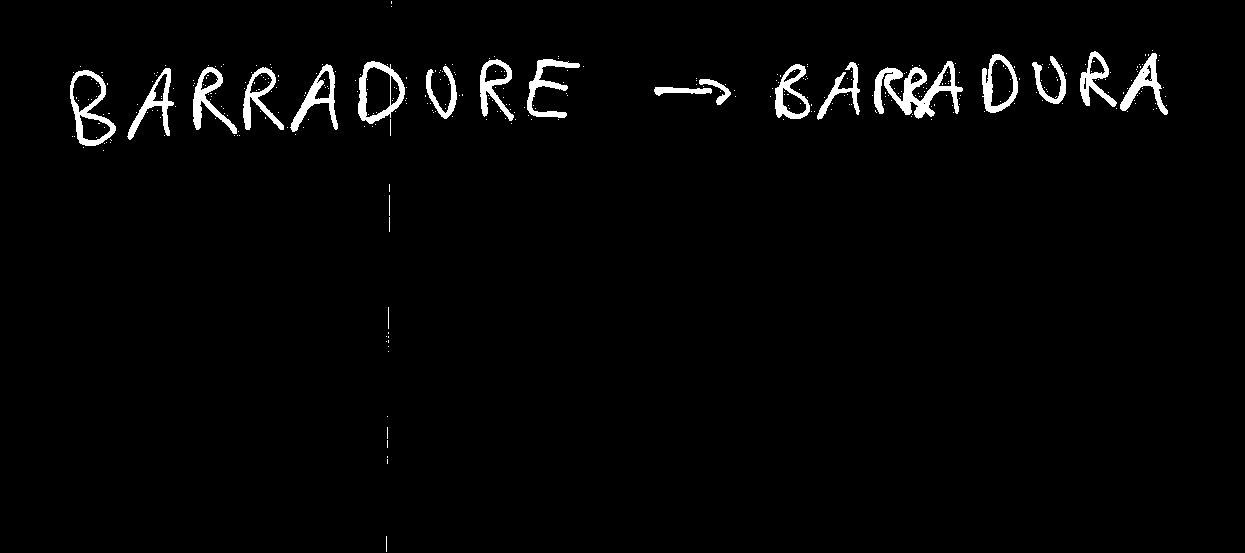 BARRADURE → BARRADURA